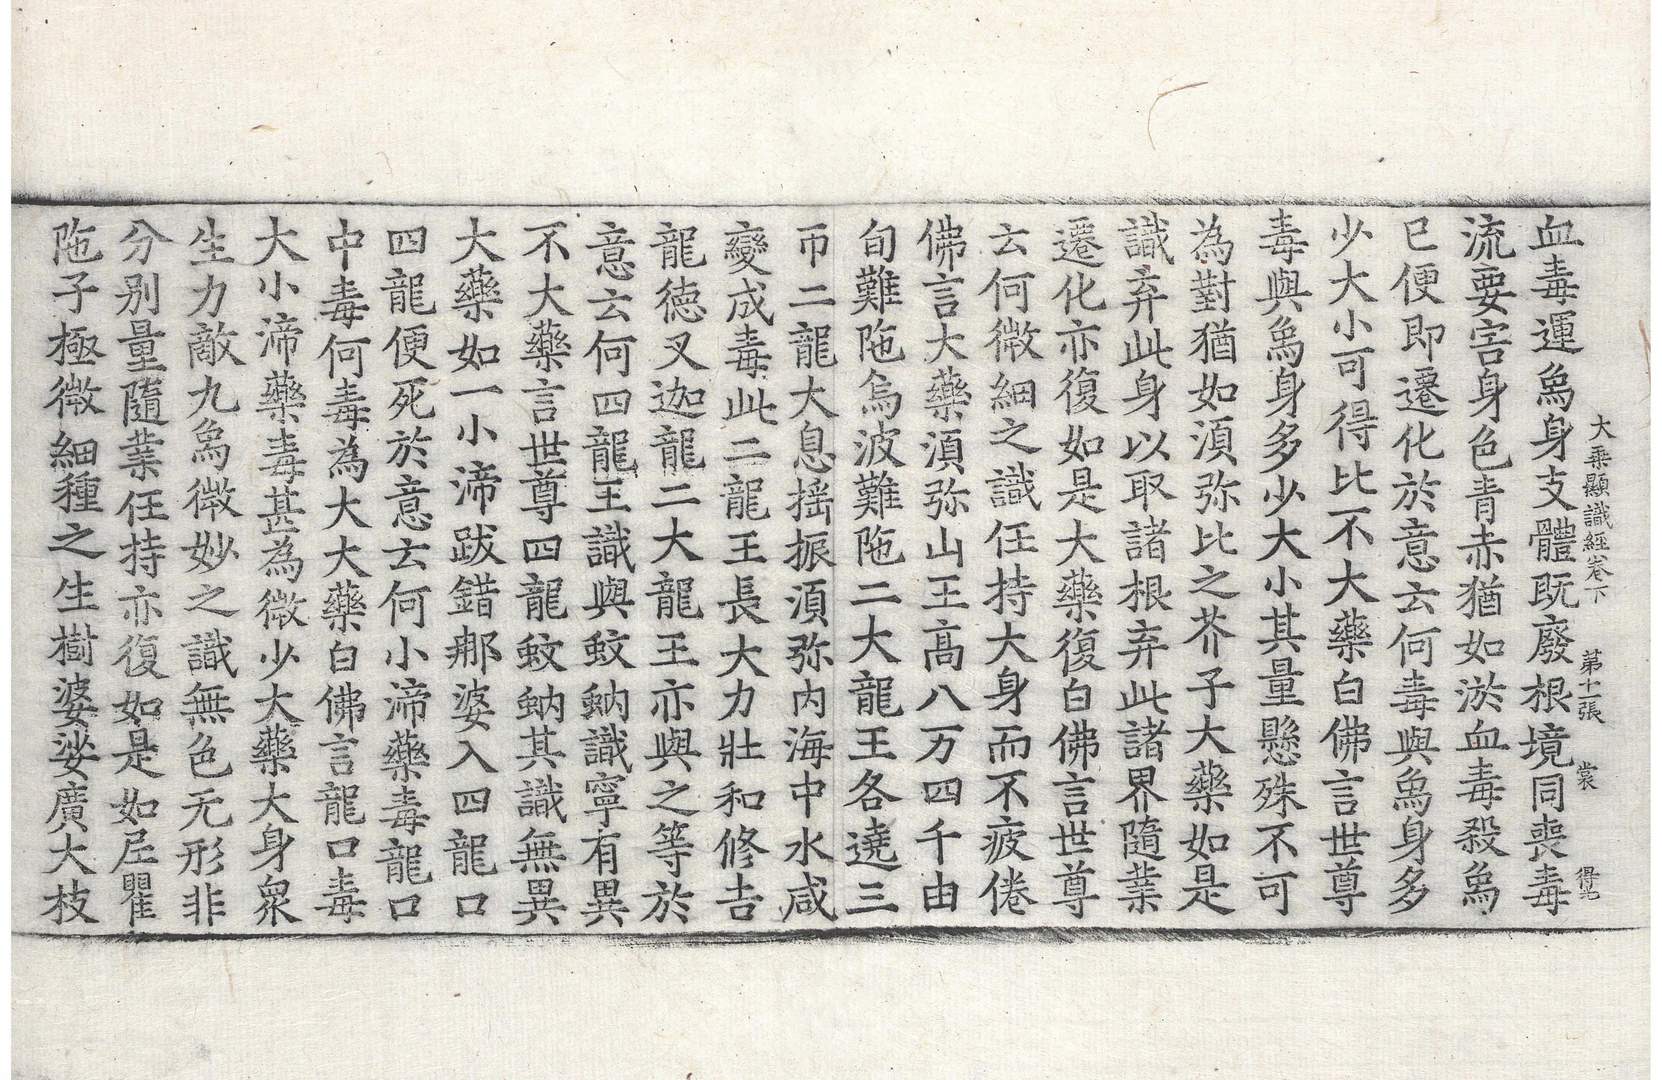 大乘顯識經卷下　第十一張　裳　得宄
血毒運爲身支體旣廢根境同喪毒
流要害身色青赤猶如淤血毒殺爲
已便即遷化於意云何毒與爲身多
少大小可得比不大藥白佛言世尊
毒與爲身多少大小其量懸殊不可
為對猶如湏弥比之芥子大藥如是
識弃此身以取諸根弃此諸界隨業
遷化亦復如是大藥復白佛言世尊
云何微細之識任持大身而不疲倦
佛言大藥湏弥山王髙八万四千由
旬難陁烏波難陁二大龍王各遶三
帀二龍大息揺振湏弥内海中水咸
變成毒此二龍王長大力壯和修吉
龍徳叉迦龍二大龍王亦與之等於
意云何四龍王識與蚊蚋識寧有異
不大藥言世尊四龍蚊蚋其識無異
大藥如一小渧跋錯那婆入四龍口
四龍便死於意云何小渧藥毒龍口
中毒何毒為大大藥白佛言龍口毒
大小渧藥毒甚為微少大藥大身衆
生力敵九爲微妙之識無色无形非
分别量隨業任持亦復如是如𡰱瞿
陁子極微細種之生樹婆娑廣大枝